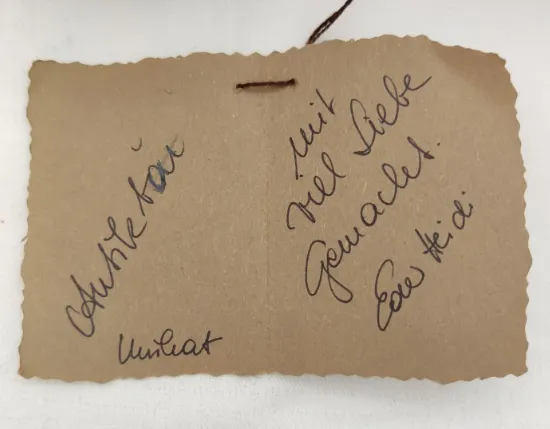 Antikbär
Unikat
mit
viel Liebe
Gemacht.
Eder Heidi